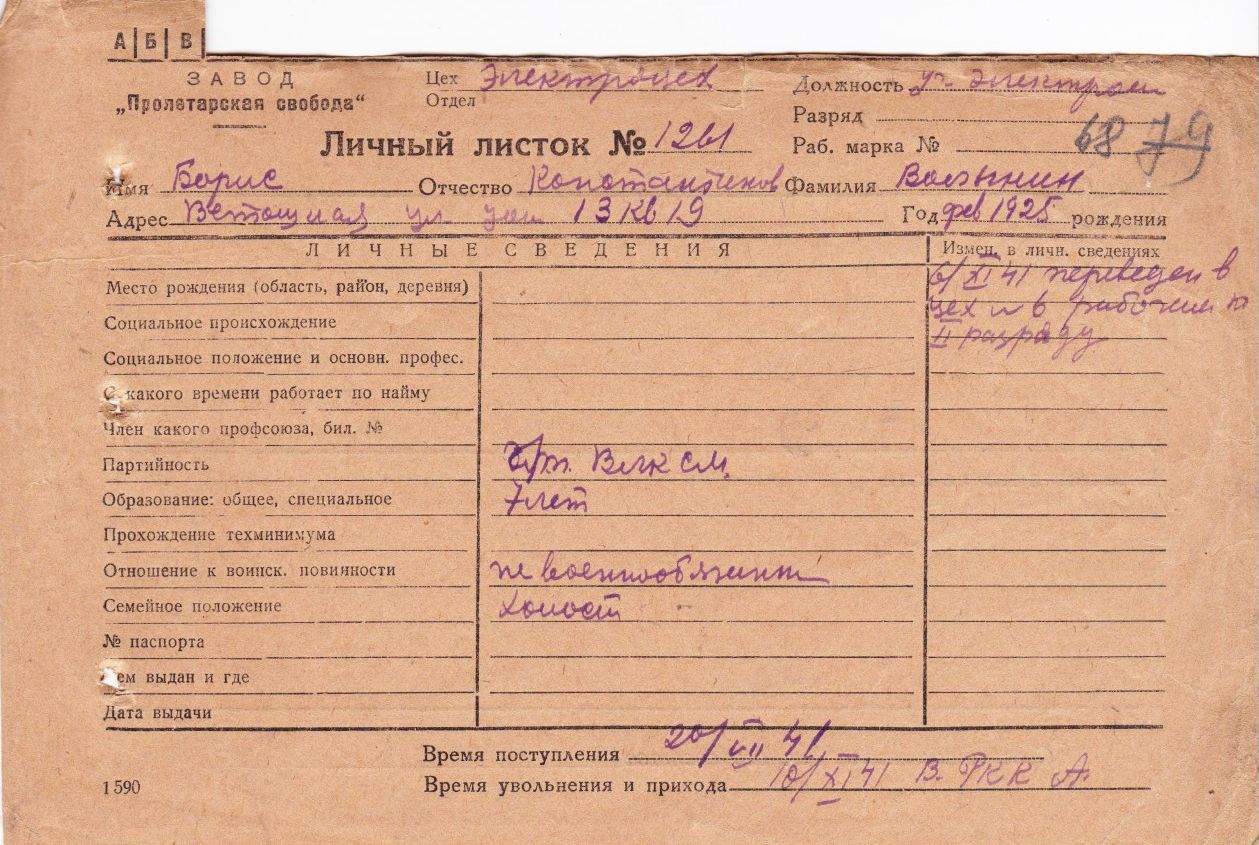 А Б В
ЗАВОД
„Пролетарская свобода“
Цех Электроцех
Отдел
Должность уч. Электром
Разряд
Личный листок № 1261
Раб. марка № 68 79
Имя Борис Отчество Константинов Фамилия Волынин
Адрес ул. дом 13 кв 19 Год фев 1925 рождения
ЛИЧНЫЕ СВЕДЕНИЯ
Измен. в личн. сведениях
6/XI 41 переведен в
цех № 6 рабочим по
II разряду
Место рождения (область, район, деревня)
Социальное происхождение
Социальное положение и основн. профес.
С какого времени работает по найму
Член какого профсоюза, бил. №
Партийность ВЛКСМ
Образование: общее, специальное 7 лет
Прохождение техминимума
Отношение к воинск. повинности не военнообязант
Семейное положение Холост
№ паспорта
Кем выдан и где
Дата выдачи
Время поступления 20/VII 41
Время увольнения и прихода 10/XI 41 В. РККА.
1590